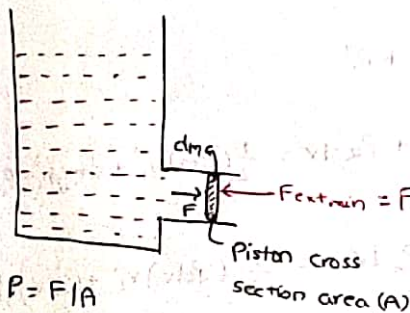 dmg
F
Fext,min = F
Piston cross
section area (A)
P = F/A